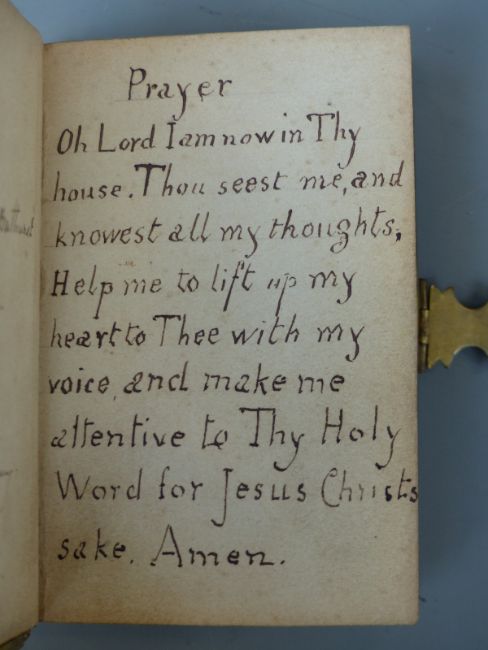 Prayer
Oh Lord I am now in Thy
house. Thou seest me, and
knowest all my thoughts,
Help me to lift up my
heart to Thee with my
voice, and make me
attentive to Thy Holy
Word for Jesus Christs
sake. Amen.